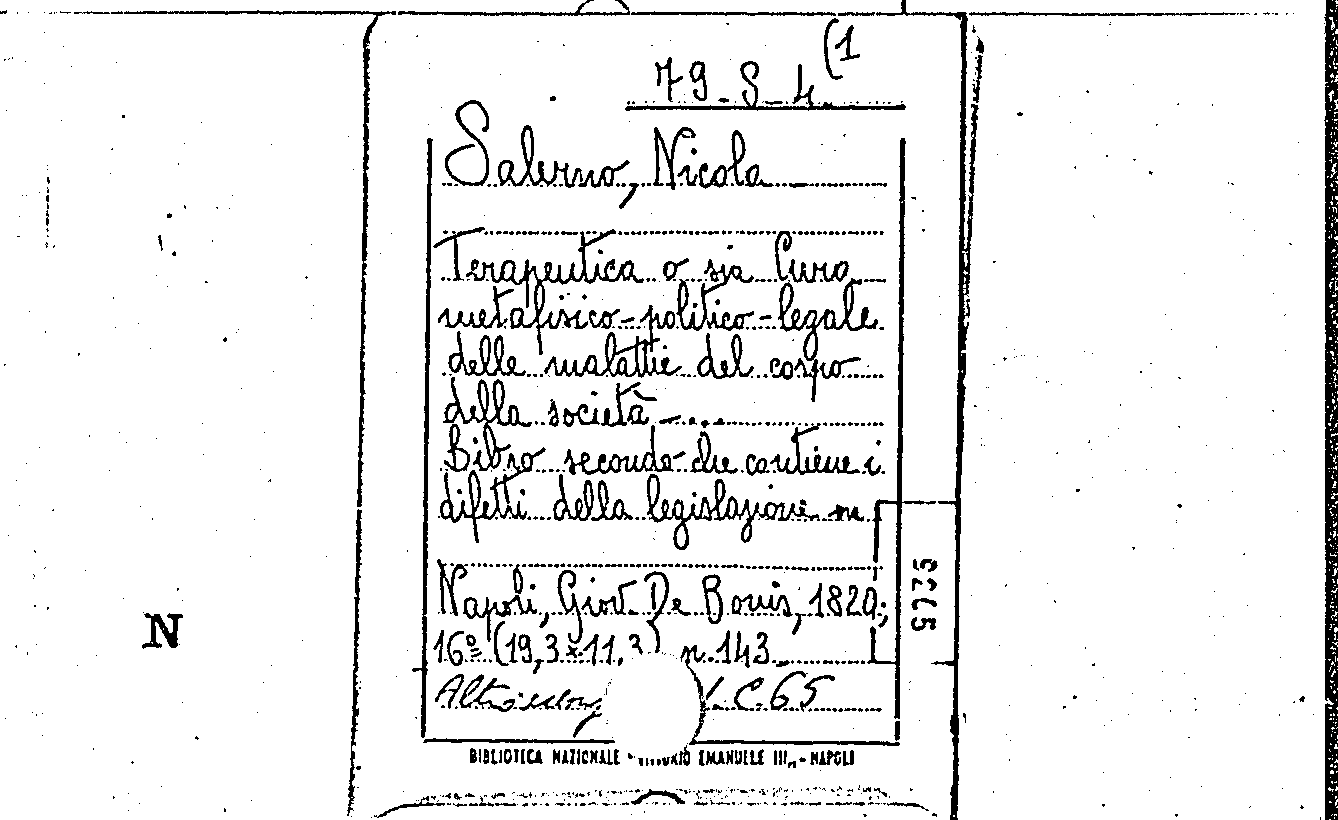 79-S-4 (1
Salerno, Nicola
Terapeutica o sia Cura
metafisico-politico-legale
delle malattie del corpo
della società - ...
Libro secondo che contiene i
difetti della legislazione
Napoli, Giov. De Bonis, 1820;
16º (19,3x11,3) p. 143
C. 65
BIBLIOTECA NAZIONALE - VITTORIO EMANUELE III,, - NAPOLI
N